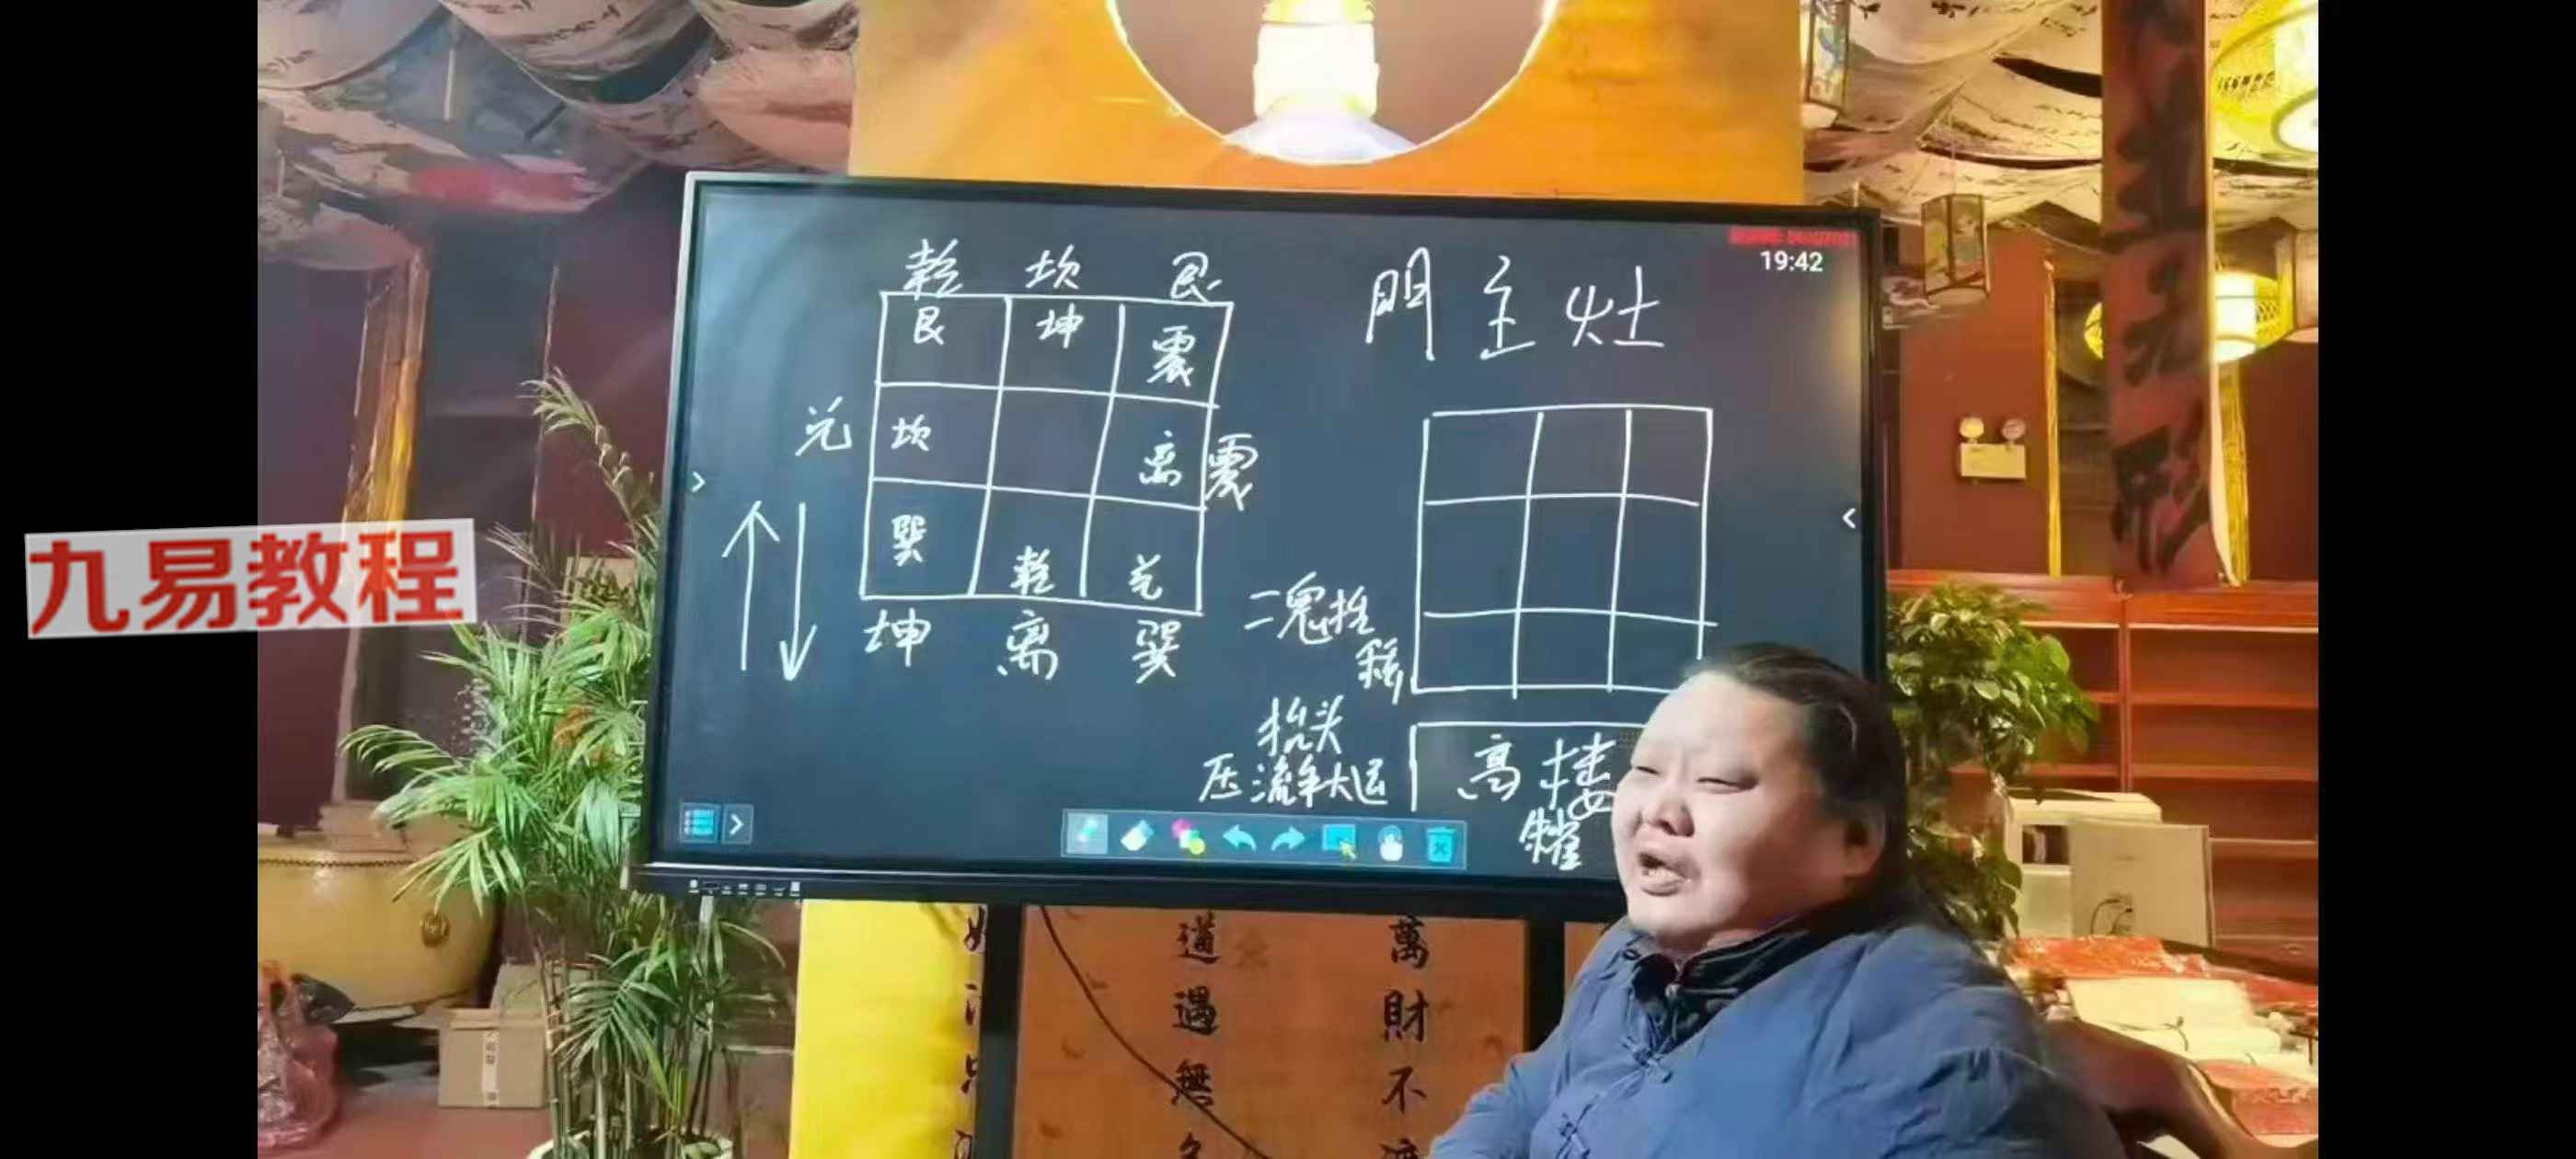 九易教程
19:42
乾 坎 艮
艮 坤 震
兑 坎 离 震
巽 乾 兑
坤 离 巽
門 主 灶
二鬼抬
抬头
压流年大运
高楼
道遇無
萬財不